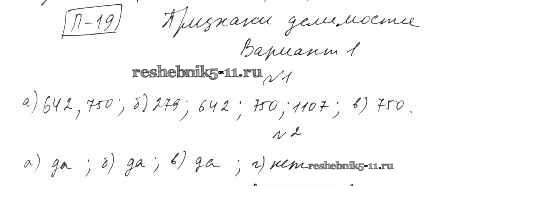 П-19 Признаки делимости
Вариант 1
reshebnik5-11.ru
№1
а) 642, 750; б) 279; 642; 750; 1107; в) 750.
№2
а) да; б) да; в) да; г) нет reshebnik5-11.ru